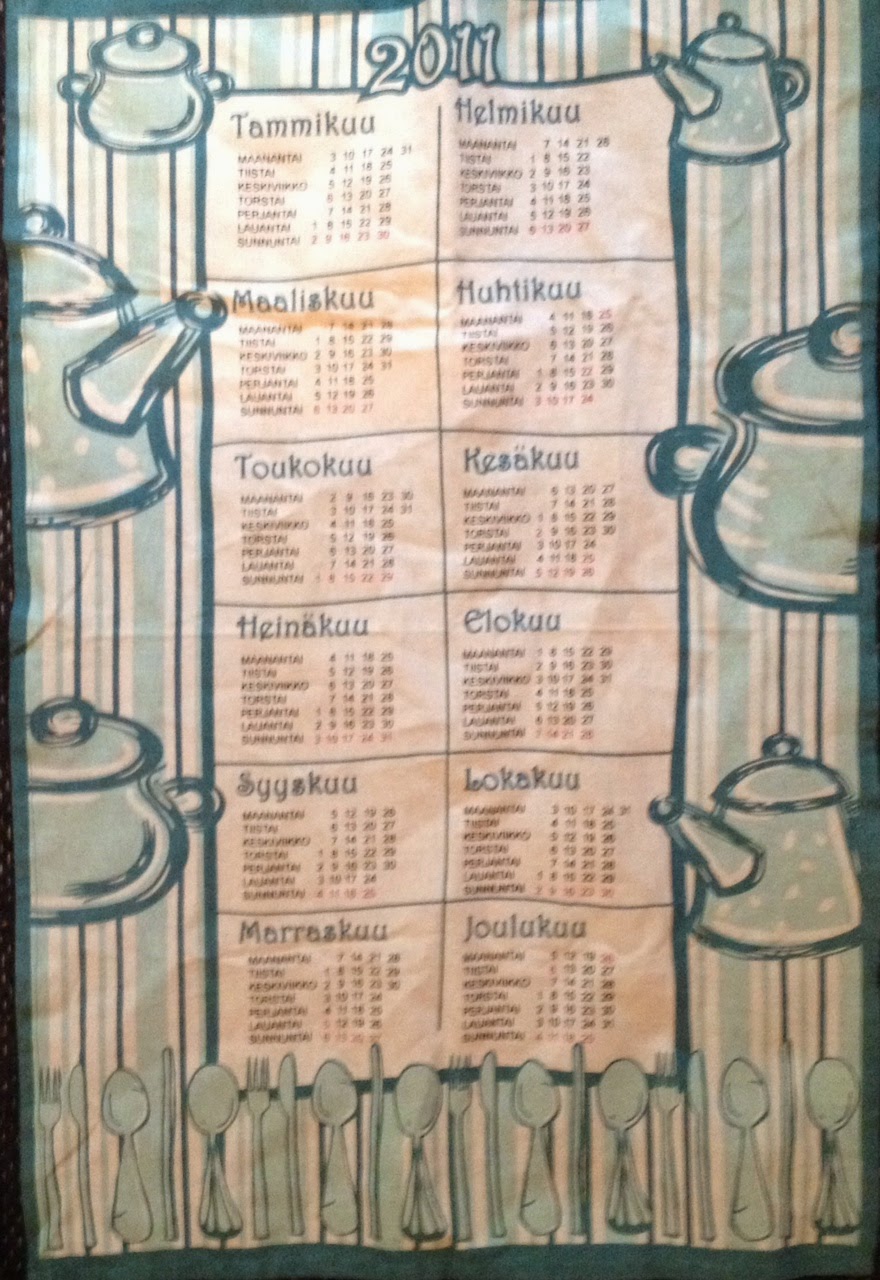 2011
Tammikuu
MAANANTAI 3 10 17 24 31
TIISTAI 4 11 18 25
KESKIVIIKKO 5 12 19 26
TORSTAI 6 13 20 27
PERJANTAI 7 14 21 28
LAUANTAI 1 8 15 22 29
SUNNUNTAI 2 9 16 23 30
Helmikuu
MAANANTAI 7 14 21 28
TIISTAI 1 8 15 22
KESKIVIIKKO 2 9 16 23
TORSTAI 3 10 17 24
PERJANTAI 4 11 18 25
LAUANTAI 5 12 19 26
SUNNUNTAI 6 13 20 27
Maaliskuu
MAANANTAI 7 14 21 28
TIISTAI 1 8 15 22 29
KESKIVIIKKO 2 9 16 23 30
TORSTAI 3 10 17 24 31
PERJANTAI 4 11 18 25
LAUANTAI 5 12 19 26
SUNNUNTAI 6 13 20 27
Huhtikuu
MAANANTAI 4 11 18 25
TIISTAI 5 12 19 26
KESKIVIIKKO 6 13 20 27
TORSTAI 7 14 21 28
PERJANTAI 1 8 15 22 29
LAUANTAI 2 9 16 23 30
SUNNUNTAI 3 10 17 24
Toukokuu
MAANANTAI 2 9 16 23 30
TIISTAI 3 10 17 24 31
KESKIVIIKKO 4 11 18 25
TORSTAI 5 12 19 26
PERJANTAI 6 13 20 27
LAUANTAI 7 14 21 28
SUNNUNTAI 1 8 15 22 29
Kesäkuu
MAANANTAI 6 13 20 27
TIISTAI 7 14 21 28
KESKIVIIKKO 1 8 15 22 29
TORSTAI 2 9 16 23 30
PERJANTAI 3 10 17 24
LAUANTAI 4 11 18 25
SUNNUNTAI 5 12 19 26
Heinäkuu
MAANANTAI 4 11 18 25
TIISTAI 5 12 19 26
KESKIVIIKKO 6 13 20 27
TORSTAI 7 14 21 28
PERJANTAI 1 8 15 22 29
LAUANTAI 2 9 16 23 30
SUNNUNTAI 3 10 17 24 31
Elokuu
MAANANTAI 1 8 15 22 29
TIISTAI 2 9 16 23 30
KESKIVIIKKO 3 10 17 24 31
TORSTAI 4 11 18 25
PERJANTAI 5 12 19 26
LAUANTAI 6 13 20 27
SUNNUNTAI 7 14 21 28
Syyskuu
MAANANTAI 5 12 19 26
TIISTAI 6 13 20 27
KESKIVIIKKO 7 14 21 28
TORSTAI 1 8 15 22 29
PERJANTAI 2 9 16 23 30
LAUANTAI 3 10 17 24
SUNNUNTAI 4 11 18 25
Lokakuu
MAANANTAI 3 10 17 24 31
TIISTAI 4 11 18 25
KESKIVIIKKO 5 12 19 26
TORSTAI 6 13 20 27
PERJANTAI 7 14 21 28
LAUANTAI 1 8 15 22 29
SUNNUNTAI 2 9 16 23 30
Marraskuu
MAANANTAI 7 14 21 28
TIISTAI 1 8 15 22 29
KESKIVIIKKO 2 9 16 23 30
TORSTAI 3 10 17 24
PERJANTAI 4 11 18 25
LAUANTAI 5 12 19 26
SUNNUNTAI 6 13 20 27
Joulukuu
MAANANTAI 5 12 19 26
TIISTAI 6 13 20 27
KESKIVIIKKO 7 14 21 28
TORSTAI 1 8 15 22 29
PERJANTAI 2 9 16 23 30
LAUANTAI 3 10 17 24 31
SUNNUNTAI 4 11 18 25